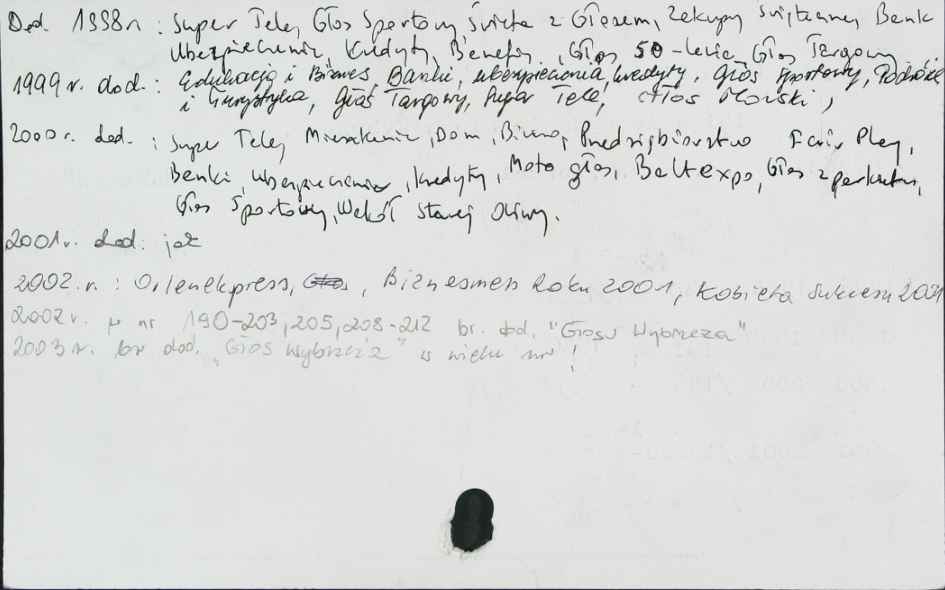 Dod. 1998 r. : Super Tele, Głos Sportowy, Święta z Głosem, Zakupy świąteczne, Banki
Ubezpieczenia, Kredyty, Benefis, Głos 50-lecie, Głos Targowy
1999 r. dod. : Edukacja i Biznes, Banki, ubezpieczenia, kredyty, głos sportowy, Podróże
i turystyka, głos Targowy, Super Tele, Głos Morski,
2000 r. dod. : Super Tele, Mieszkanie, Dom, Biuro, Przedsiębiorstwo Fair Play,
Banki, ubezpieczenia, kredyty, Moto głos, Baltexpo, Głos z parkietu,
Głos Sportowy, Wokół Starej Oliwy.
2001 r. dod: jak
2002 r. : Orlenekspress, Głos, Biznesmen Roku 2001, Kobieta sukcesu 2001
2002 r. w nr 190-203, 205, 208-212 br. dod. "Głosu Wybrzeża"
2003 r. br dod. "Głos Wybrzeża" w wielu nr!